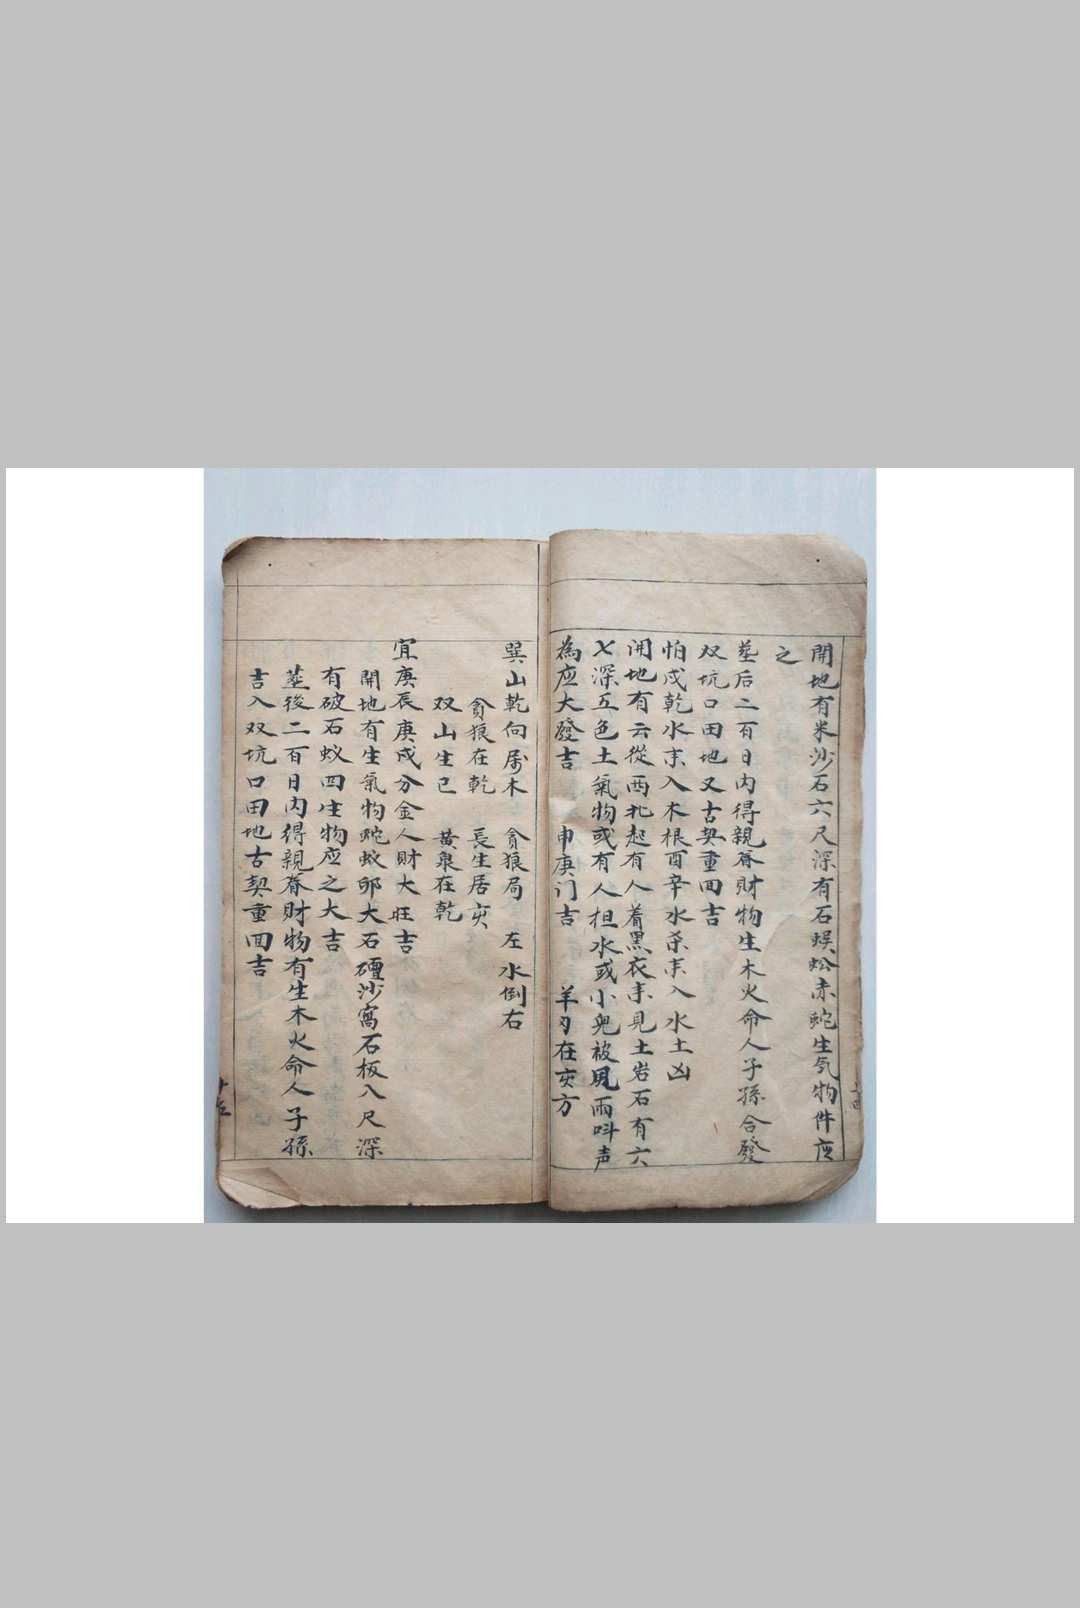 開地有米沙石六尺深有石蜈蚣赤蛇生気物件应
之
塟后二百日内得親眷財物生木火命人子孫合發
双坑口田地又古契重囬吉
怕戌乾水来入木根酉辛水杀来入水土凶
開地有云從西北起有人着黑衣来見土岩石有六
七深五色土氣物或有人担水或小鬼被風雨呌声
為应大發吉 申庚门吉 羊刃在亥方
巽山乾向属木 貪狼局 左水倒右
貪狼在乾 長生居亥
双山生巳 黄泉在乾
宜庚辰庚戌分金人財大旺吉
開地有生氣物蛇蚁卵大石礓沙窩石板八尺深
有破石蚁四生物应之大吉
塟後二百日内得親眷財物有生木火命人子孫
吉入双坑口田地古契重囬吉